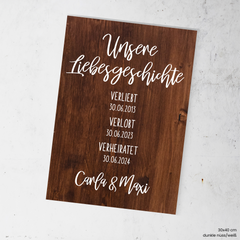 Unsere
Liebesgeschichte
VERLIEBT
30.06.2013
VERLOBT
30.06.2023
VERHEIRATET
30.06.2024
Carla & Maxi
30x40 cm
dunkle nuss/weiß